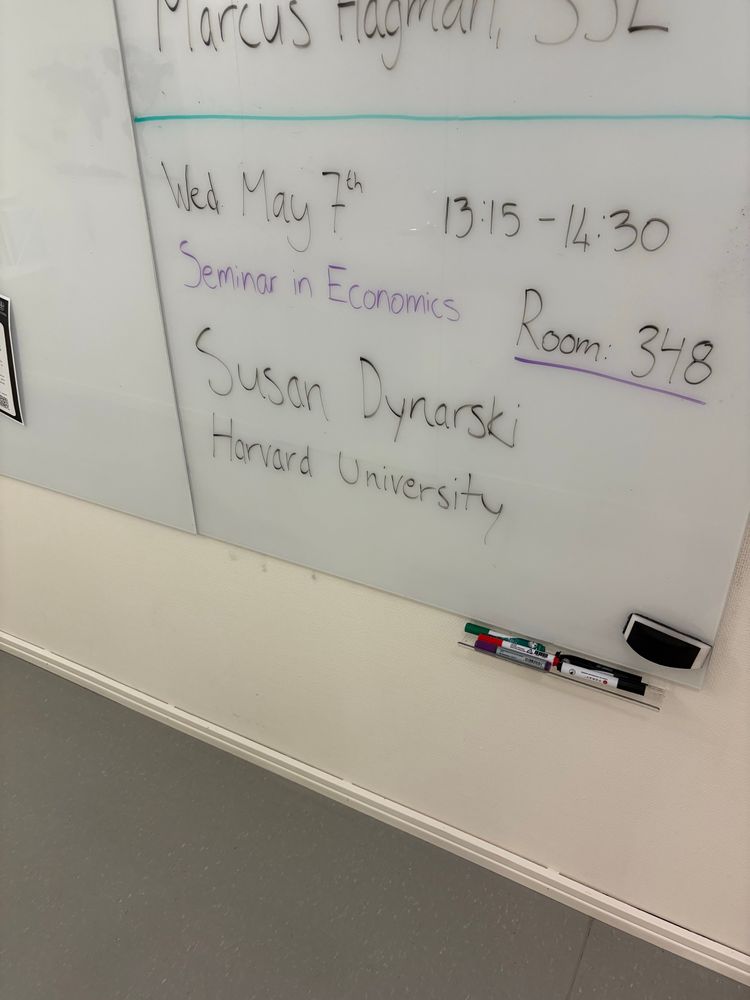 Marcus Hagman, SSE
Wed. May 7th 13:15 - 14:30
Seminar in Economics
Room: 348
Susan Dynarski
Harvard University